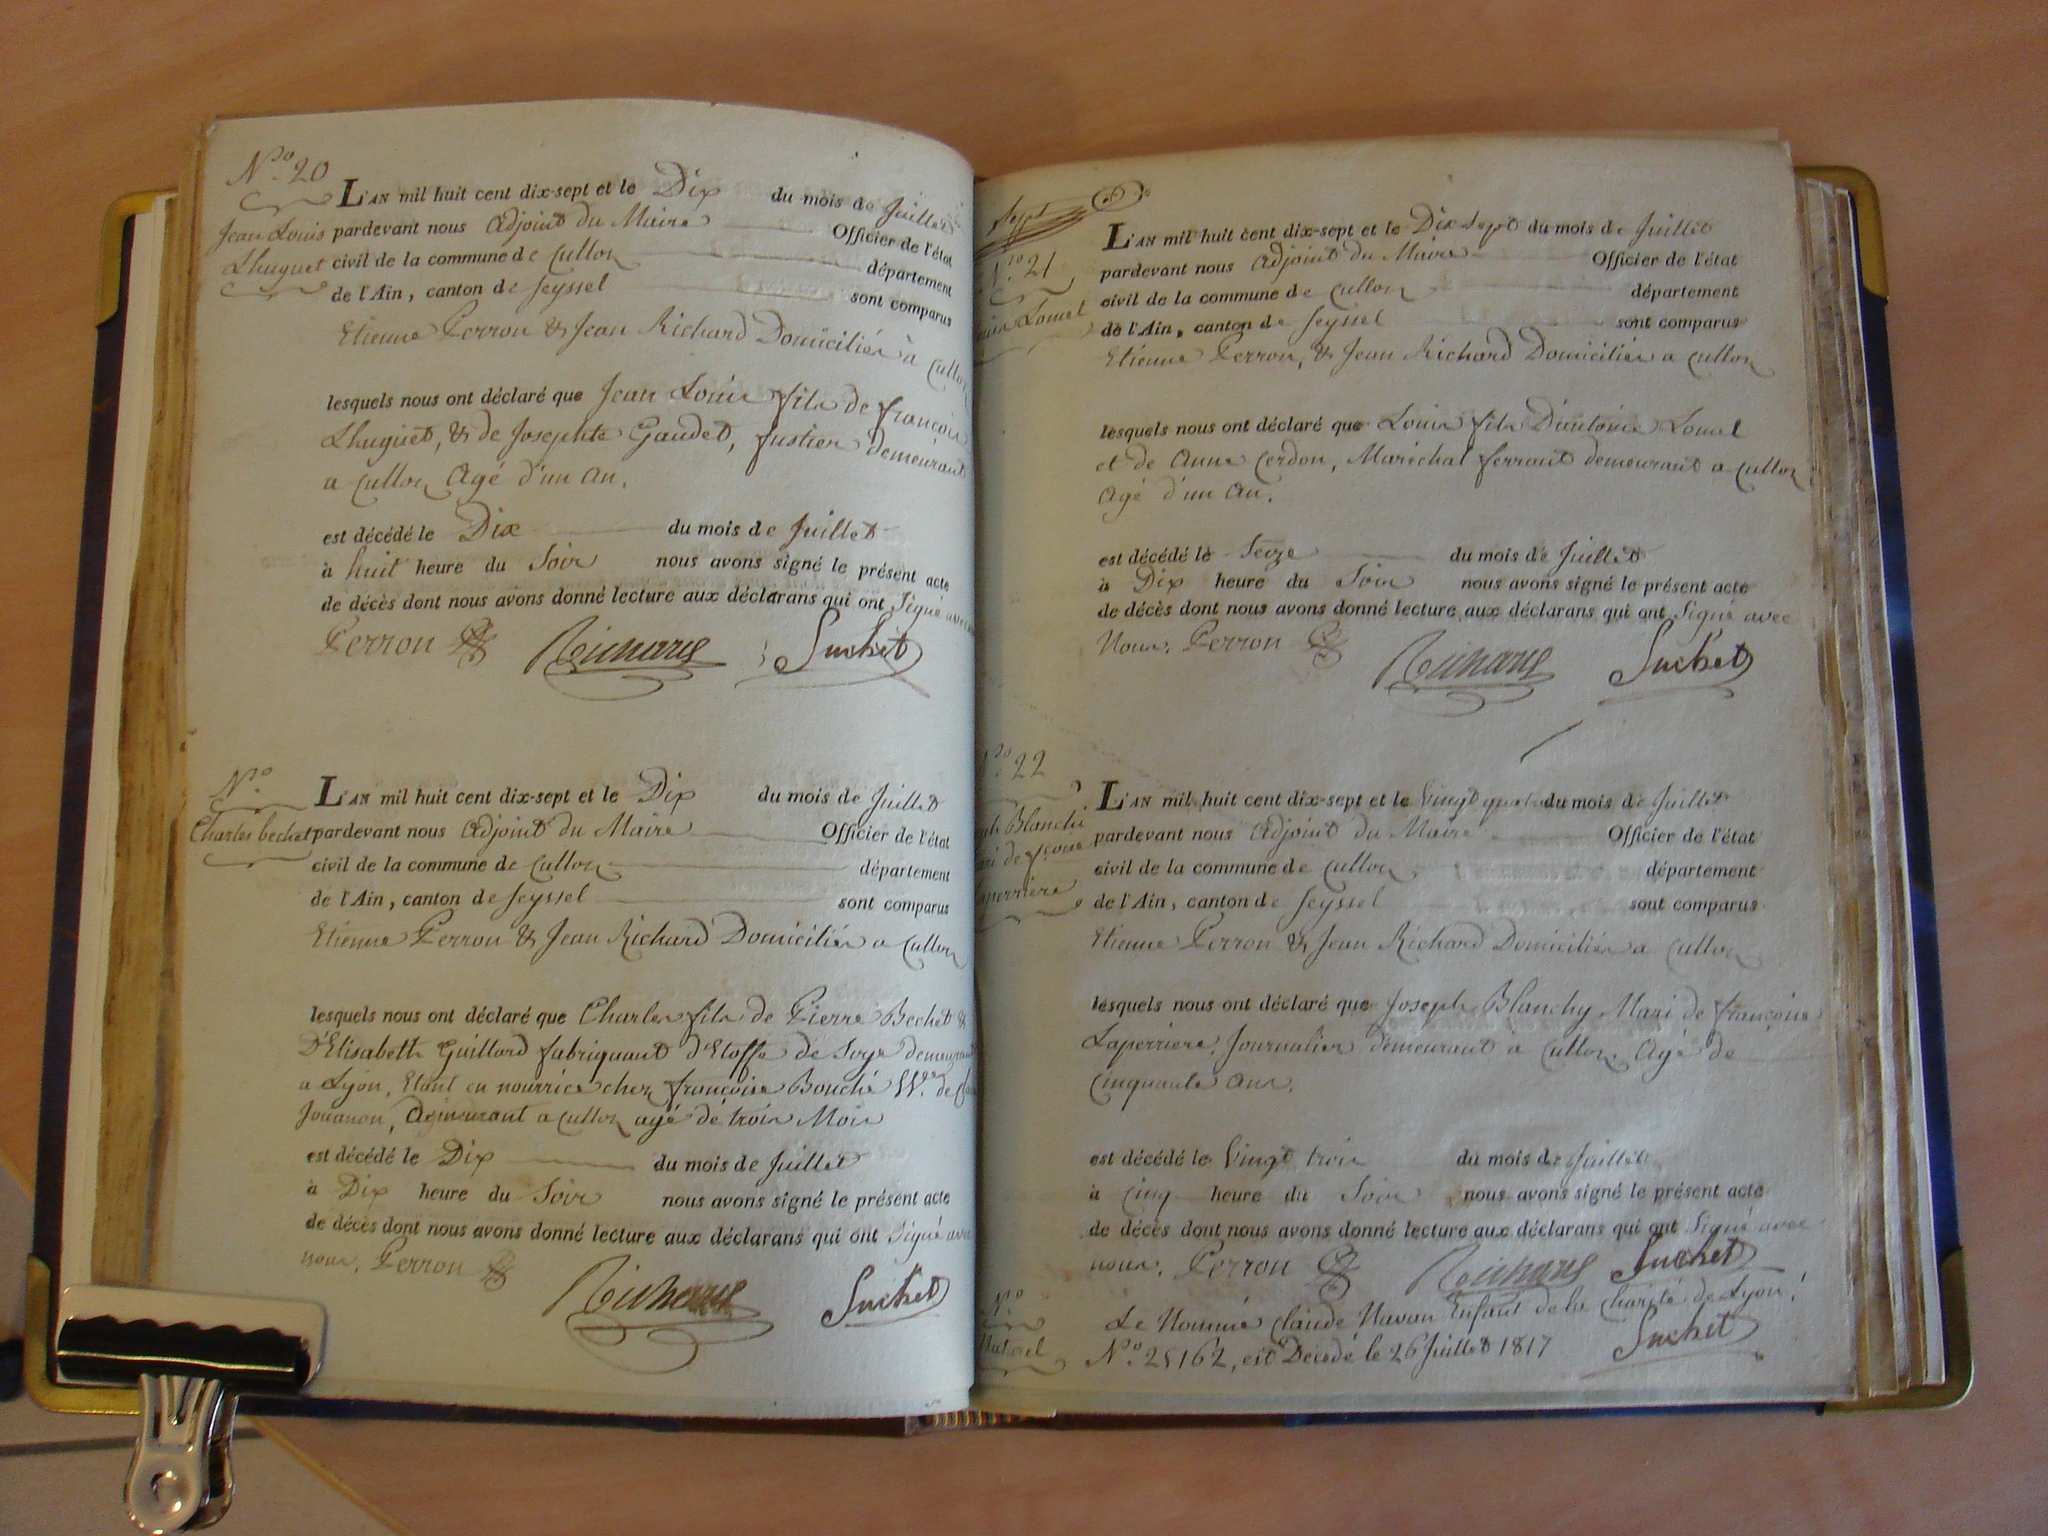 N.º 20
Jean Louis
Lhuguet
L'AN mil huit cent dix-sept et le Dix du mois de Juillet
pardevant nous Adjoint du Maire Officier de l'état
civil de la commune de Culloz département
de l'Ain, canton de Seyssel sont comparus
Etienne Perron & Jean Richard Domiciliés à Culloz
lesquels nous ont déclaré que Jean Louis fils de françois
Lhuguet, & de Josephte Gaudet, fustier demeurant
a Culloz Agé d'un an.
est décédé le Dix du mois de Juillet
à huit heure du Soir nous avons signé le présent acte
de décès dont nous avons donné lecture aux déclarans qui ont Signé avec
Perron Richard Suchet
N.º
Charles bechet
L'AN mil huit cent dix-sept et le Dix du mois de Juillet
pardevant nous Adjoint du Maire Officier de l'état
civil de la commune de Culloz département
de l'Ain, canton de Seyssel sont comparus
Etienne Perron & Jean Richard Domiciliés a Culloz
lesquels nous ont déclaré que Charles fils de Pierre Bechet &
D'Elisabeth Guillard fabriquant d'Etoffe de Soye demeurant
a Lyon, Etant en nourrice chez françoise Bouché V.ve de
Jouanon, demeurant a Culloz agé de trois Mois
est décédé le Dix du mois de Juillet
à Dix heure du Soir nous avons signé le présent acte
de décès dont nous avons donné lecture aux déclarans qui ont Signé avec
nous. Perron Richard Suchet
Sept
N.º 21
Louis Lomel
L'AN mil huit cent dix-sept et le Dix Sept du mois de Juillet
pardevant nous Adjoint du Maire Officier de l'état
civil de la commune de Culloz département
de l'Ain, canton de Seyssel sont comparus
Etienne Perron, & Jean Richard Domiciliés a Culloz
lesquels nous ont déclaré que Louis fils D'antoine Lomel
et de Anne Cerdon, Maréchal ferrant demeurant a Culloz
Agé d'un An.
est décédé le Seize du mois de Juillet
à Dix heure du Soir nous avons signé le présent acte
de décès dont nous avons donné lecture aux déclarans qui ont Signé avec
Nous. Perron Richard Suchet
N.º 22
Joseph Blanchy
Mari de f.çoise
Laperriere
L'AN mil huit cent dix-sept et le Vingt quatre du mois de Juillet
pardevant nous Adjoint du Maire Officier de l'état
civil de la commune de Culloz département
de l'Ain, canton de Seyssel sont comparus
Etienne Perron & Jean Richard Domiciliés a Culloz
lesquels nous ont déclaré que Joseph Blanchy Mari de françoise
Laperriere, Journalier demeurant a Culloz, Agé de
Cinquante ans.
est décédé le Vingt trois du mois de Juillet
à Cinq heure du Soir nous avons signé le présent acte
de décès dont nous avons donné lecture aux déclarans qui ont Signé avec
nous. Perron Richard Suchet
N.º
Naturel
Le Nommé Claude Navan Enfant de la Charité de Lyon,
N.º 25162, est Décédé le 26 Juillet 1817 Suchet